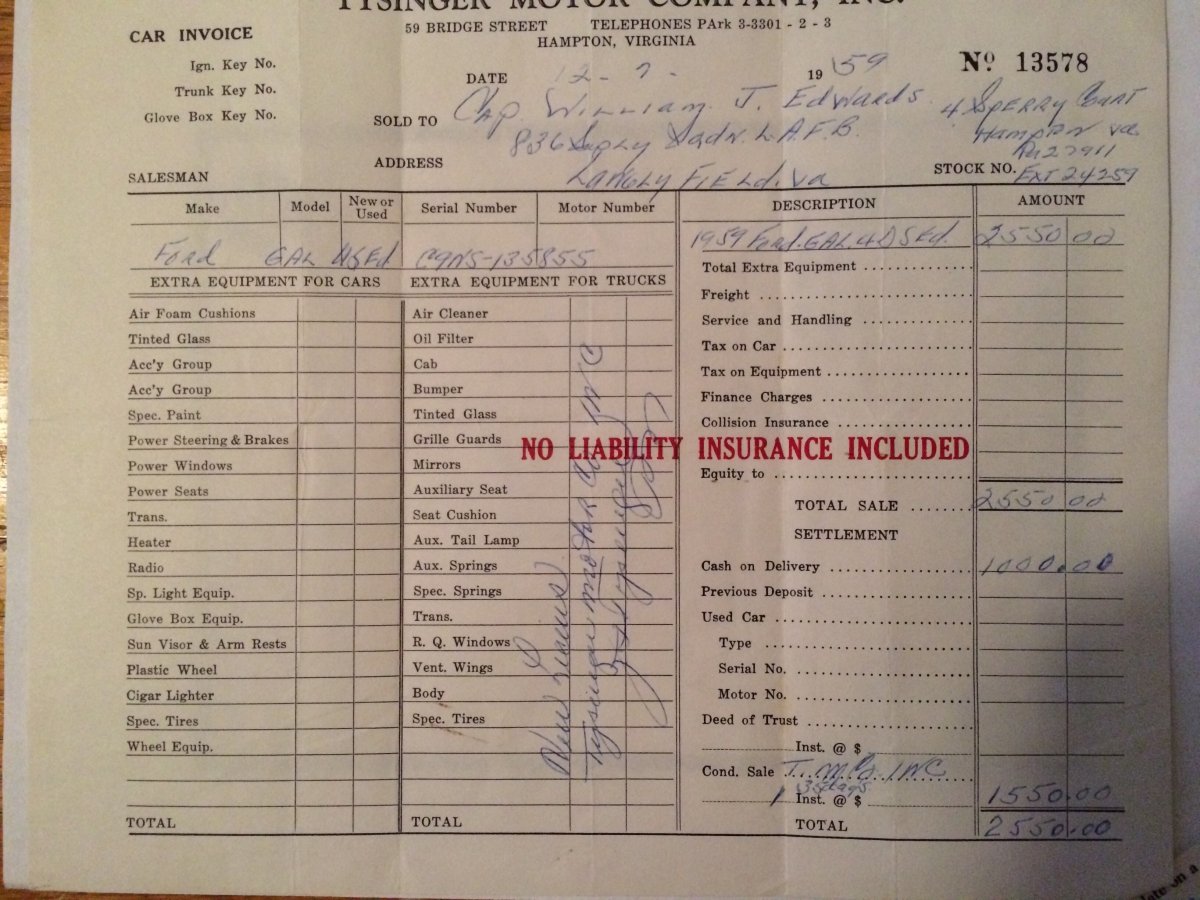 TYSINGER MOTOR COMPANY, INC.
59 BRIDGE STREET TELEPHONES PArk 3-3301 - 2 - 3
HAMPTON, VIRGINIA
CAR INVOICE
Ign. Key No.
Trunk Key No.
Glove Box Key No.
SALESMAN
DATE 12-7- 19 59
No 13578
SOLD TO Cap. William. J. Edwards
836 Sqdn. L.A.F.B.
ADDRESS
Langly Field. Va
4 Sperry Court
Hampton va
Pa 27911
STOCK NO. Ext 24259
Make Model New or Used Serial Number Motor Number DESCRIPTION AMOUNT
Ford GAL USEd C9NS-135855 1959 Ford. GAL 4D SEd. 2550 00
EXTRA EQUIPMENT FOR CARS
Air Foam Cushions
Tinted Glass
Acc'y Group
Acc'y Group
Spec. Paint
Power Steering & Brakes
Power Windows
Power Seats
Trans.
Heater
Radio
Sp. Light Equip.
Glove Box Equip.
Sun Visor & Arm Rests
Plastic Wheel
Cigar Lighter
Spec. Tires
Wheel Equip.
TOTAL
EXTRA EQUIPMENT FOR TRUCKS
Air Cleaner
Oil Filter
Cab
Bumper
Tinted Glass
Grille Guards
Mirrors
Auxiliary Seat
Seat Cushion
Aux. Tail Lamp
Aux. Springs
Spec. Springs
Trans.
R. Q. Windows
Vent. Wings
Body
Spec. Tires
TOTAL
Tysinger motor Co INC
Total Extra Equipment
Freight
Service and Handling
Tax on Car
Tax on Equipment
Finance Charges
Collision Insurance
NO LIABILITY INSURANCE INCLUDED
Equity to
TOTAL SALE 2550 00
SETTLEMENT
Cash on Delivery 1000.00
Previous Deposit
Used Car
Type
Serial No.
Motor No.
Deed of Trust
Inst. @ $
Cond. Sale T. M. Co. INC
35 days
1 Inst. @ $ 1550.00
TOTAL 2550.00